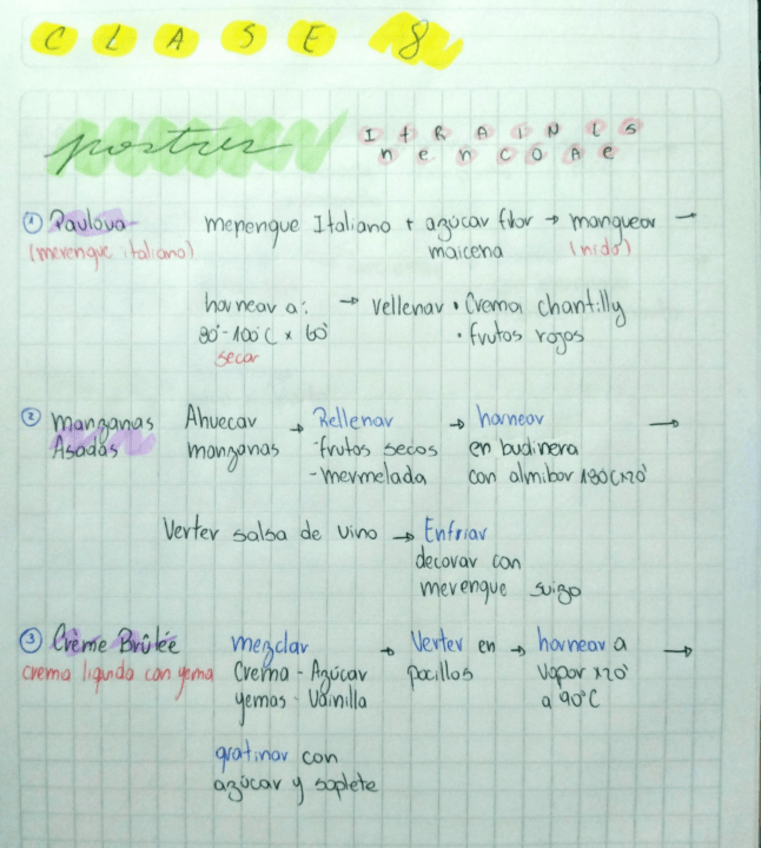 CLASE 8
postres
I t R A I N L S
n e n c O A e
① Pavlova
(merengue italiano)
merengue Italiano + azúcar flor → manguear →
maicena (nido)
hornear a: → rellenar • Crema chantilly
90°-100°C x 60' • frutos rojos
secar
② Manzanas Ahuecar → Rellenar → hornear →
Asadas manzanas -frutos secos en budinera
-mermelada con almibar 180°C x 20'
Verter salsa de vino → Enfriar
decorar con
merengue suizo
③ Crème Brûlée mezclar → Verter en → hornear a →
crema liquida con yema Crema - Azúcar pocillos vapor x20'
yemas - Vainilla a 90°C
gratinar con
azúcar y soplete